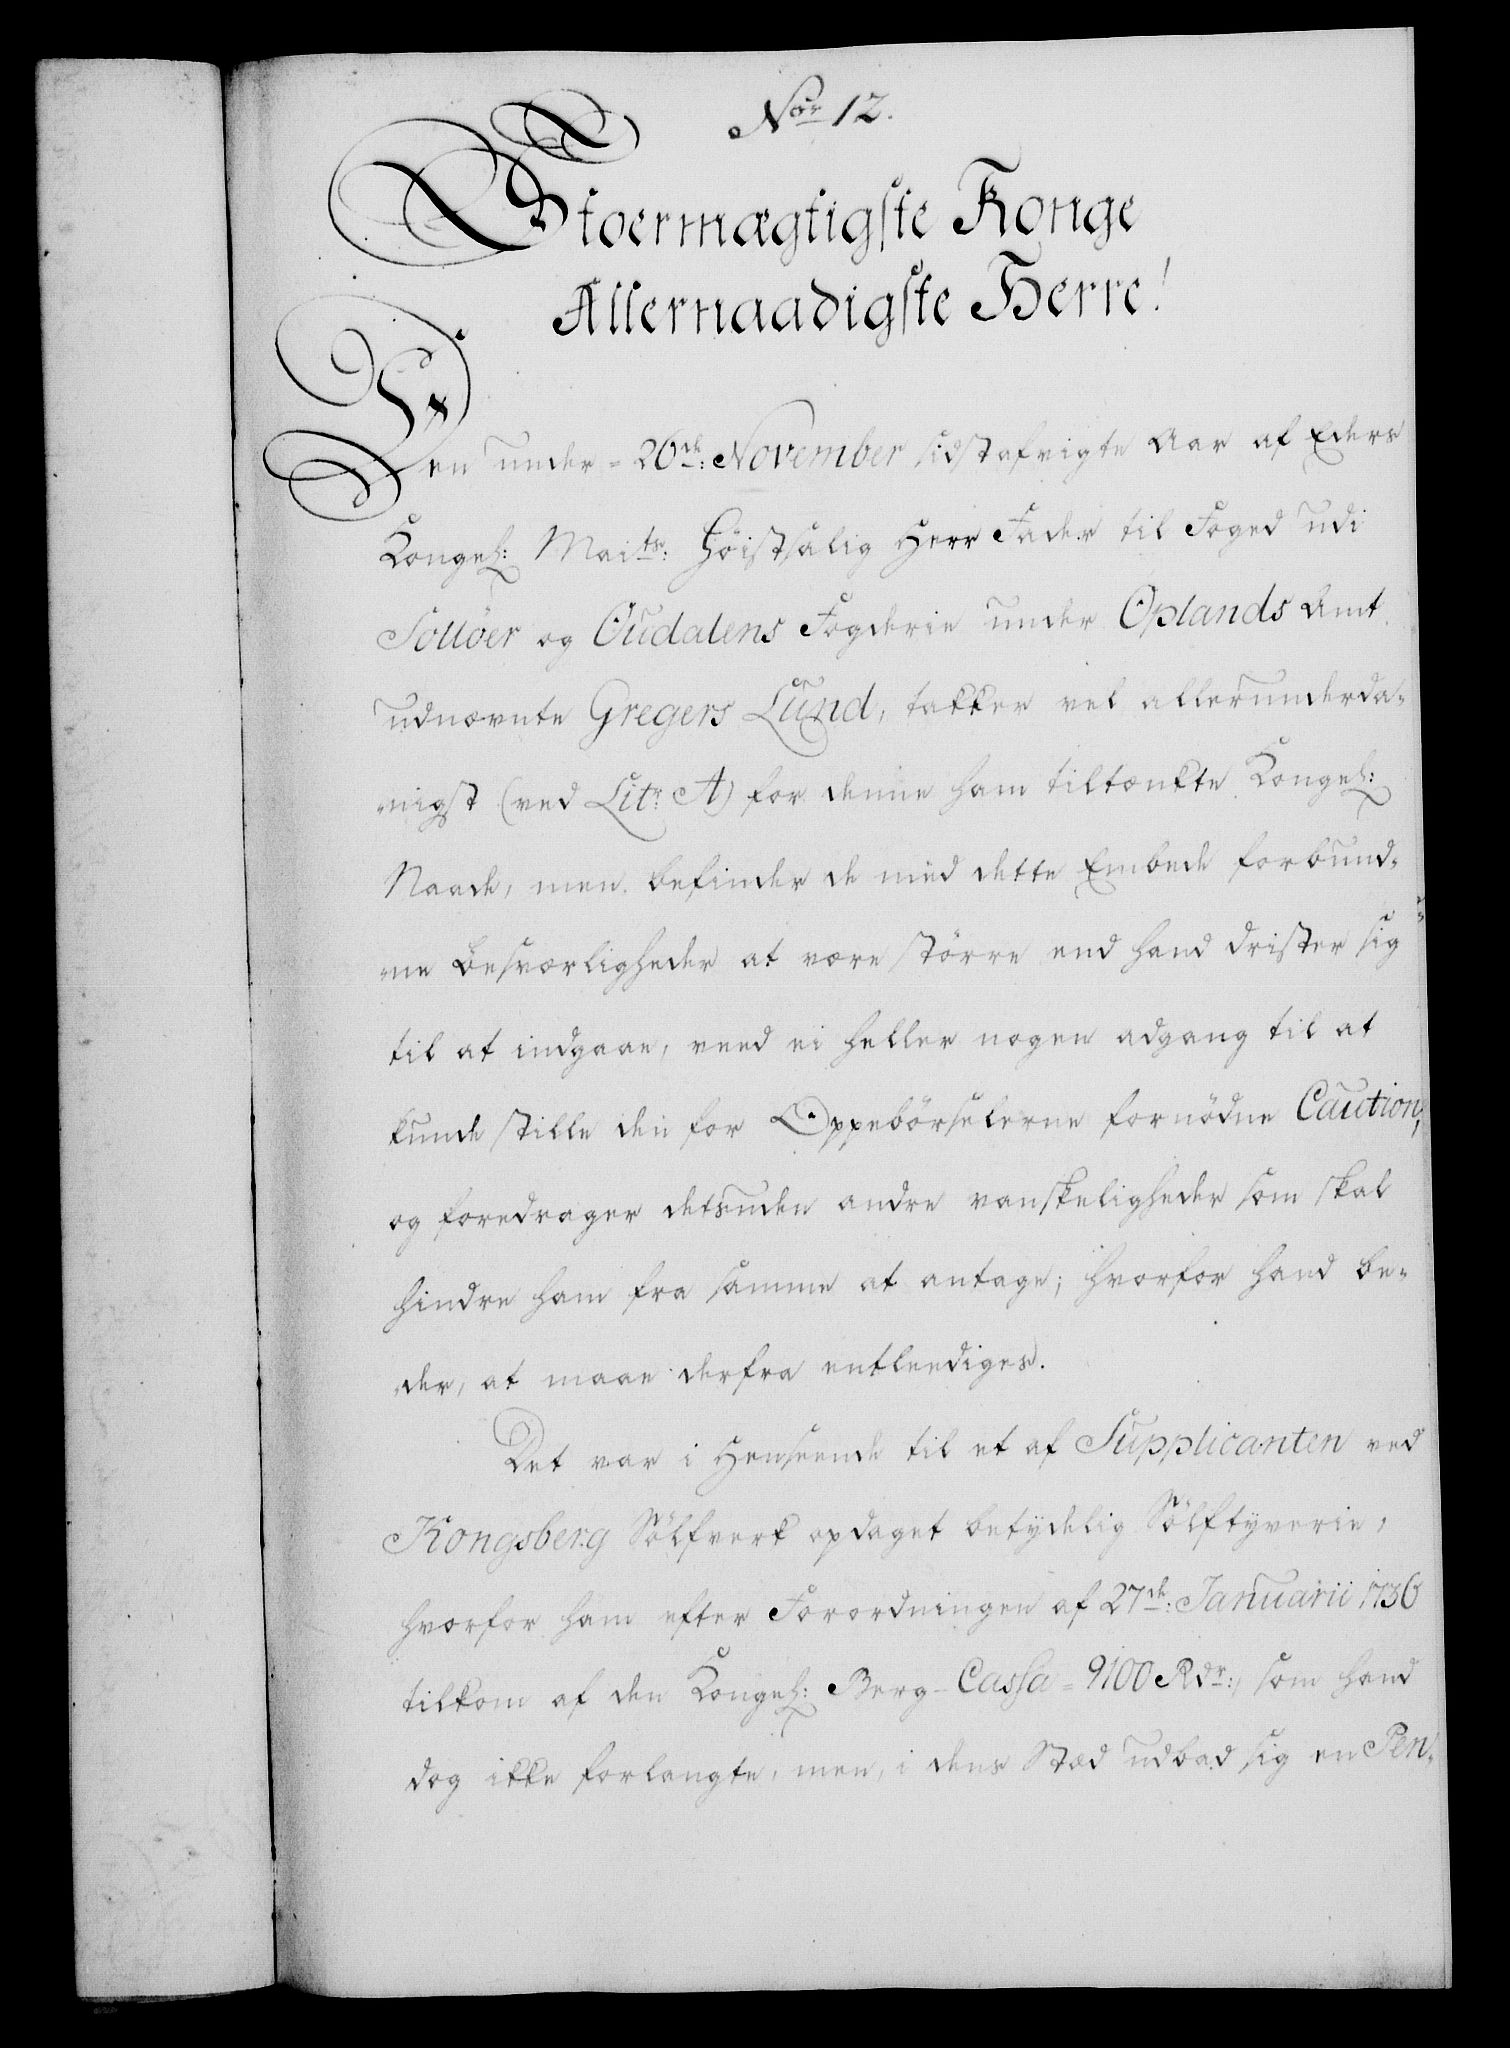 Nor 12.
Stoermægtigste Konge
Allernaadigste Herre!
Den under = 26de: November sidstafvigte Aar af Eders
Kongel: Maits: Høistsalig Herr Fader til Foged udi
Solløer og Oudalens Fogderie under Oplands Amt
udnævnte Gregers Lund, takker vel allerunderda-
nigst (ved Litr A) for denne ham tiltænkte Kongel:
Naade, men befinder de med dette Embede forbund-
ne Besværligheder at være større end hand drister sig
til at indgaae, veed ei heller nogen adgang til at
kunde stille den for Oppebørselerne fornødne Caution,
og foredrager desuden andre vanskeligheder som skal
hindre ham fra samme at antage; hvorfor hand be-
der, at maae derfra entleediges.
Det var i Henseende til et af Supplicanten ved
Kongsberg Sølfverk opdaget betydelig Sølftyverie,
hvorfor ham efter Forordningen af 27de: Januarii 1736
tilkom af den Kongel: Berg-Cassa = 9100 Rdr:, som hand
dog ikke forlangte, men, i dens Stæd udbad sig en Pen-